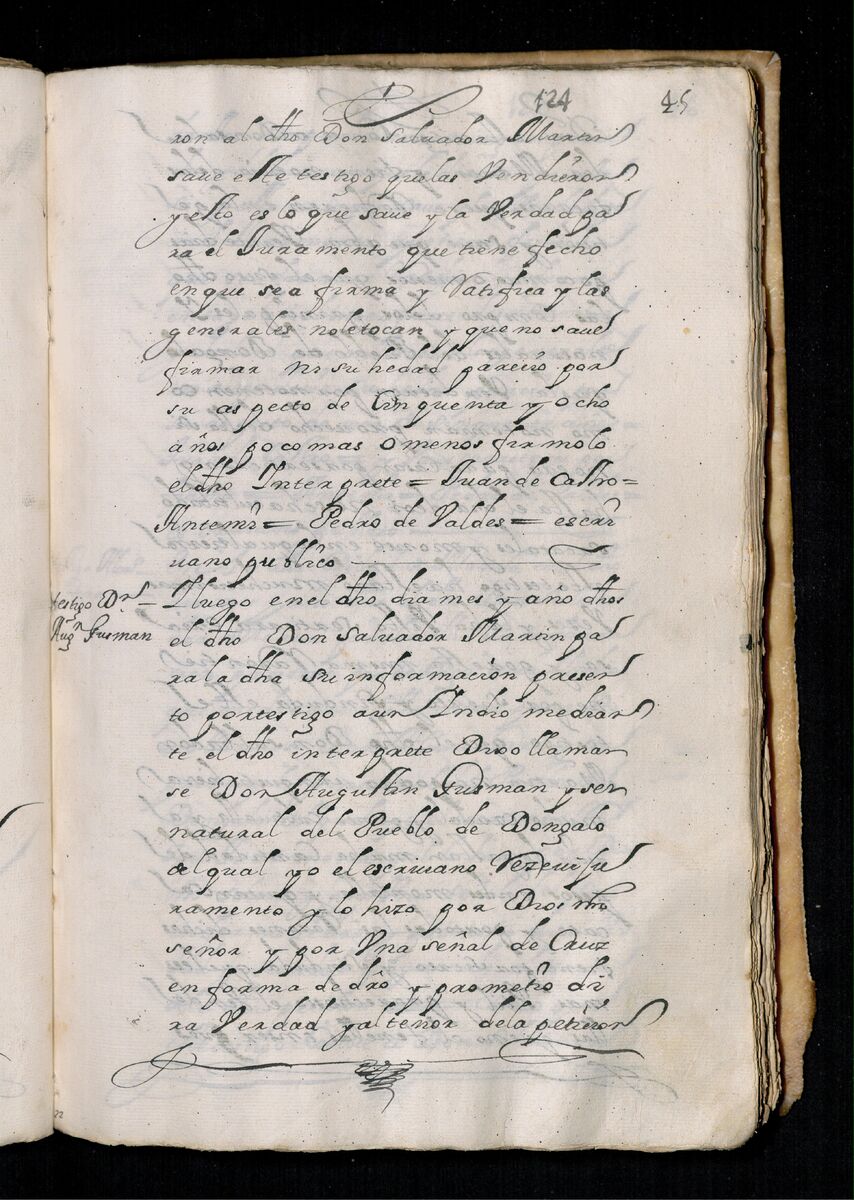 124 45
ron al dho Don Saluador Martin
saue este testigo que las Vendieron
y esto es lo que saue y la Verdad pa
ra el Juramento que tiene fecho
en que se a firma y Ratifica y las
generales no le tocan y que no saue
firmar ni su hedad pareció por
su aspecto de Cinquenta y ocho
años poco mas o menos firmolo
el dho Interprete = Juan de Castro =
Antemi = Pedro de Valdes = escri
uano publico
testigo Dn Augn Gusman
I luego en el dho dia mes y año dhos
el dho Don Saluador Martin pa
ra la dha su informacion presen
to por testigo a un Indio median
te el dho interprete Dixo llamar
se Don Augustin Gusman y ser
natural del Pueblo de Dongalo
del qual yo el escriuano Rezeui Ju
ramento y lo hizo por Dios nro
señor y por Vna señal de Cruz
en forma de dro y prometio di
ra Verdad y al tenor de la peticion
22